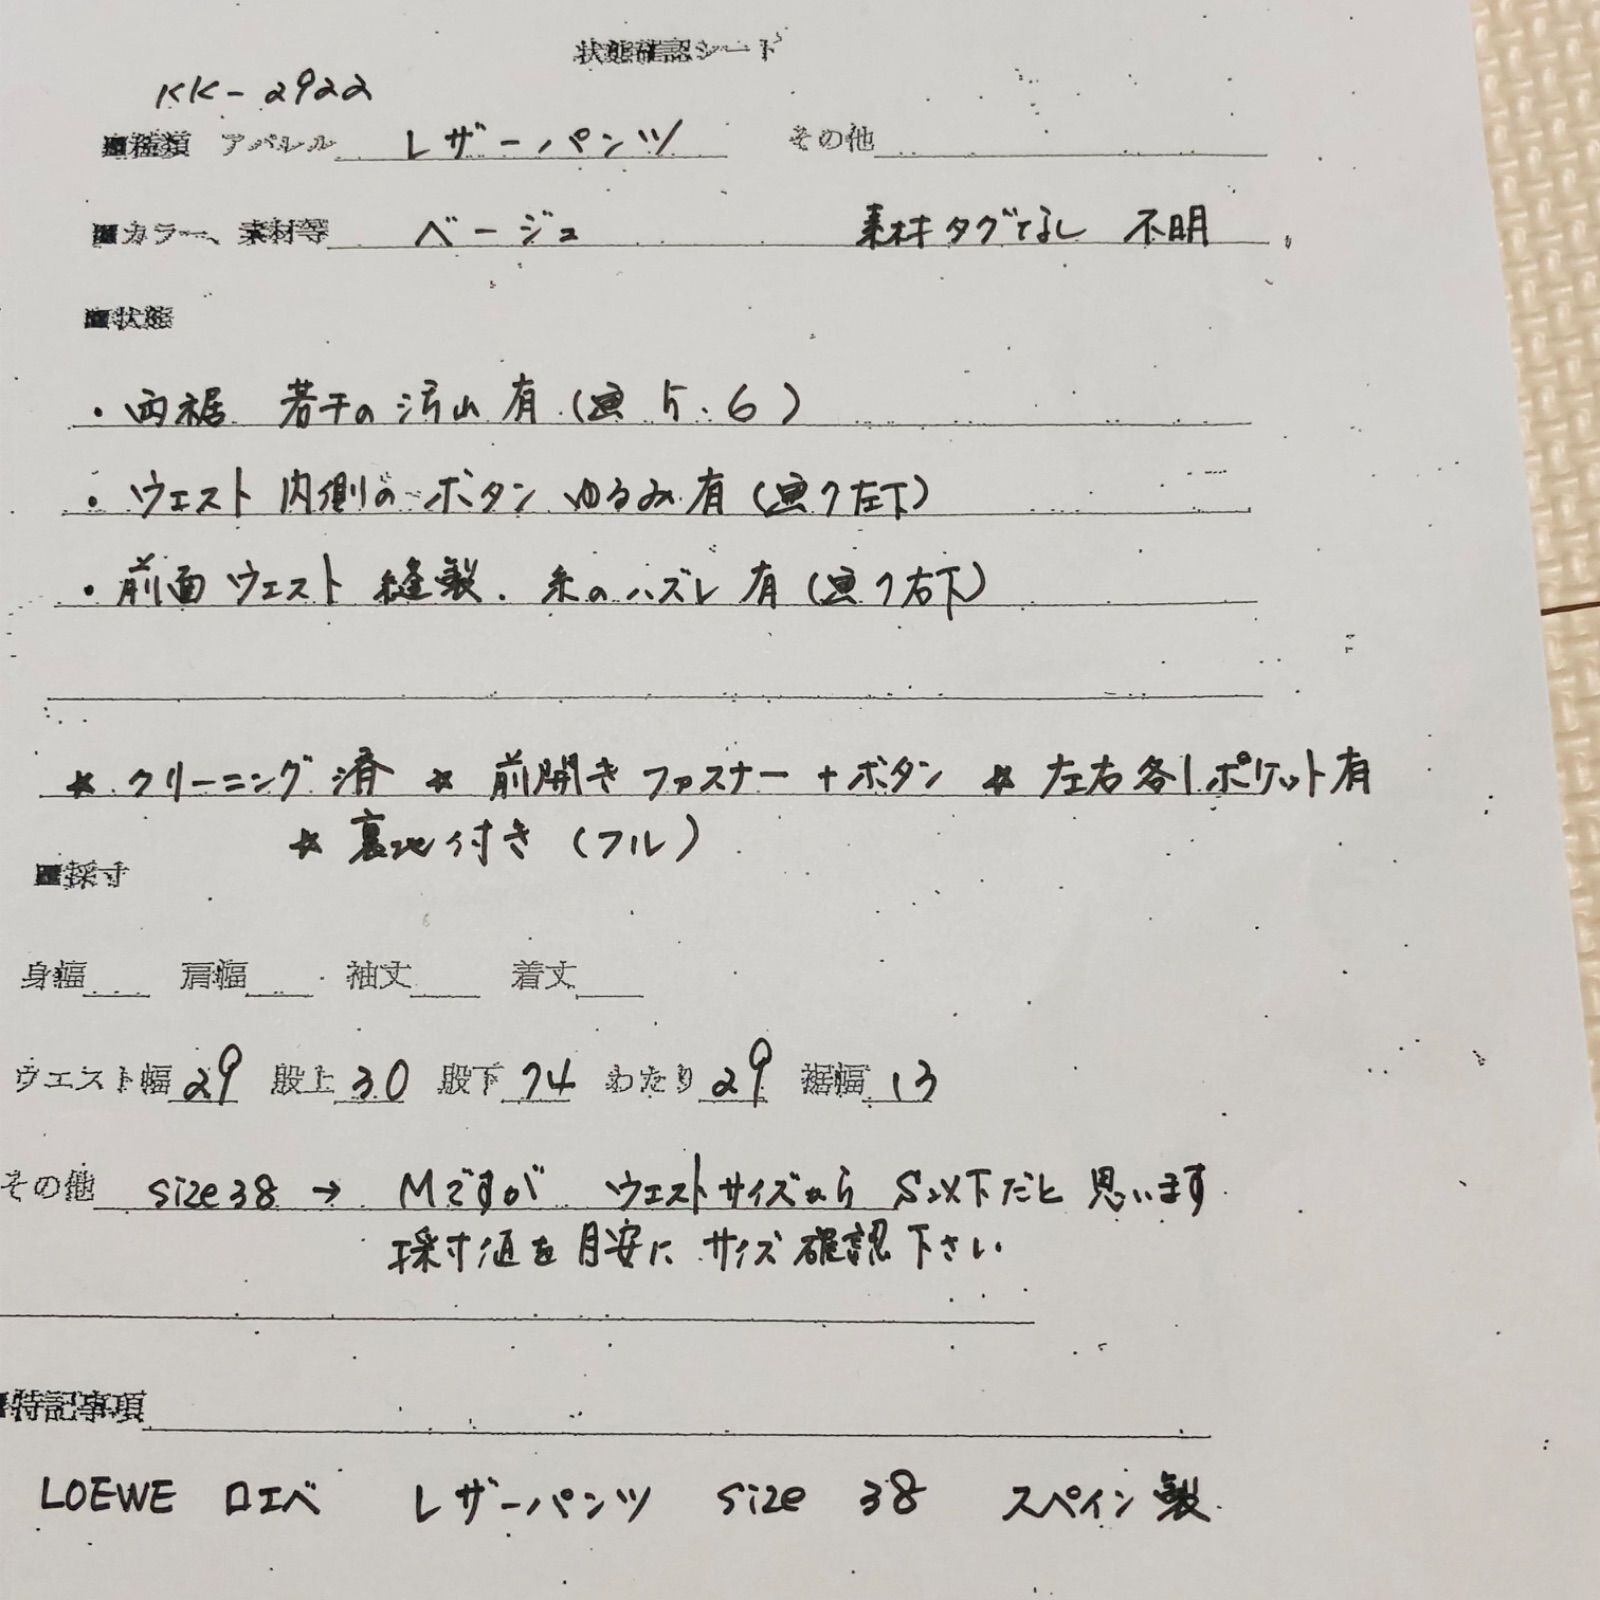 状態確認シート
KK-2922
■種類 アパレル レザーパンツ その他
■カラー、素材等 ベージュ 素材タグなし 不明
■状態
・両裾 若干の汚れ有(画5.6)
・ウェスト内側のボタン ゆるみ有(画7左下)
・前面ウェスト 縫製.糸のハズレ有(画7右下)
☆クリーニング済 ☆前開きファスナー+ボタン ☆左右各1ポケット有
☆裏地付き(フル)
■採寸
身幅 肩幅 袖丈 着丈
ウエスト幅 29 股上 30 股下 74 わたり 29 裾幅 13
その他 size38→ Mですが ウエストサイズから S以下だと思います
採寸値を目安に サイズ確認下さい
■特記事項
LOEWE ロエベ レザーパンツ size 38 スペイン製